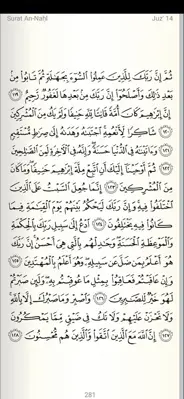 Surat An-Nahl
Juz' 14
ثُمَّ إِنَّ رَبَّكَ لِلَّذِينَ عَمِلُوا۟ ٱلسُّوٓءَ بِجَهَٰلَةٍ ثُمَّ تَابُوا۟ مِنۢ
بَعْدِ ذَٰلِكَ وَأَصْلَحُوٓا۟ إِنَّ رَبَّكَ مِنۢ بَعْدِهَا لَغَفُورٌ رَّحِيمٌ ١١٩
إِنَّ إِبْرَٰهِيمَ كَانَ أُمَّةً قَانِتًا لِّلَّهِ حَنِيفًا وَلَمْ يَكُ مِنَ ٱلْمُشْرِكِينَ
١٢٠ شَاكِرًا لِّأَنْعُمِهِ ٱجْتَبَىٰهُ وَهَدَىٰهُ إِلَىٰ صِرَٰطٍ مُّسْتَقِيمٍ
١٢١ وَءَاتَيْنَٰهُ فِى ٱلدُّنْيَا حَسَنَةً وَإِنَّهُۥ فِى ٱلْءَاخِرَةِ لَمِنَ ٱلصَّٰلِحِينَ
١٢٢ ثُمَّ أَوْحَيْنَآ إِلَيْكَ أَنِ ٱتَّبِعْ مِلَّةَ إِبْرَٰهِيمَ حَنِيفًا وَمَا كَانَ
مِنَ ٱلْمُشْرِكِينَ ١٢٣ إِنَّمَا جُعِلَ ٱلسَّبْتُ عَلَى ٱلَّذِينَ
ٱخْتَلَفُوا۟ فِيهِ وَإِنَّ رَبَّكَ لَيَحْكُمُ بَيْنَهُمْ يَوْمَ ٱلْقِيَٰمَةِ فِيمَا
كَانُوا۟ فِيهِ يَخْتَلِفُونَ ١٢٤ ٱدْعُ إِلَىٰ سَبِيلِ رَبِّكَ بِٱلْحِكْمَةِ
وَٱلْمَوْعِظَةِ ٱلْحَسَنَةِ وَجَٰدِلْهُم بِٱلَّتِى هِىَ أَحْسَنُ إِنَّ رَبَّكَ
هُوَ أَعْلَمُ بِمَن ضَلَّ عَن سَبِيلِهِۦ وَهُوَ أَعْلَمُ بِٱلْمُهْتَدِينَ ١٢٥
وَإِنْ عَاقَبْتُمْ فَعَاقِبُوا۟ بِمِثْلِ مَا عُوقِبْتُم بِهِۦ وَلَئِن صَبَرْتُمْ
لَهُوَ خَيْرٌ لِّلصَّٰبِرِينَ ١٢٦ وَٱصْبِرْ وَمَا صَبْرُكَ إِلَّا بِٱللَّهِ
وَلَا تَحْزَنْ عَلَيْهِمْ وَلَا تَكُ فِى ضَيْقٍ مِّمَّا يَمْكُرُونَ
١٢٧ إِنَّ ٱللَّهَ مَعَ ٱلَّذِينَ ٱتَّقَوا۟ وَّٱلَّذِينَ هُم مُّحْسِنُونَ ١٢٨
281